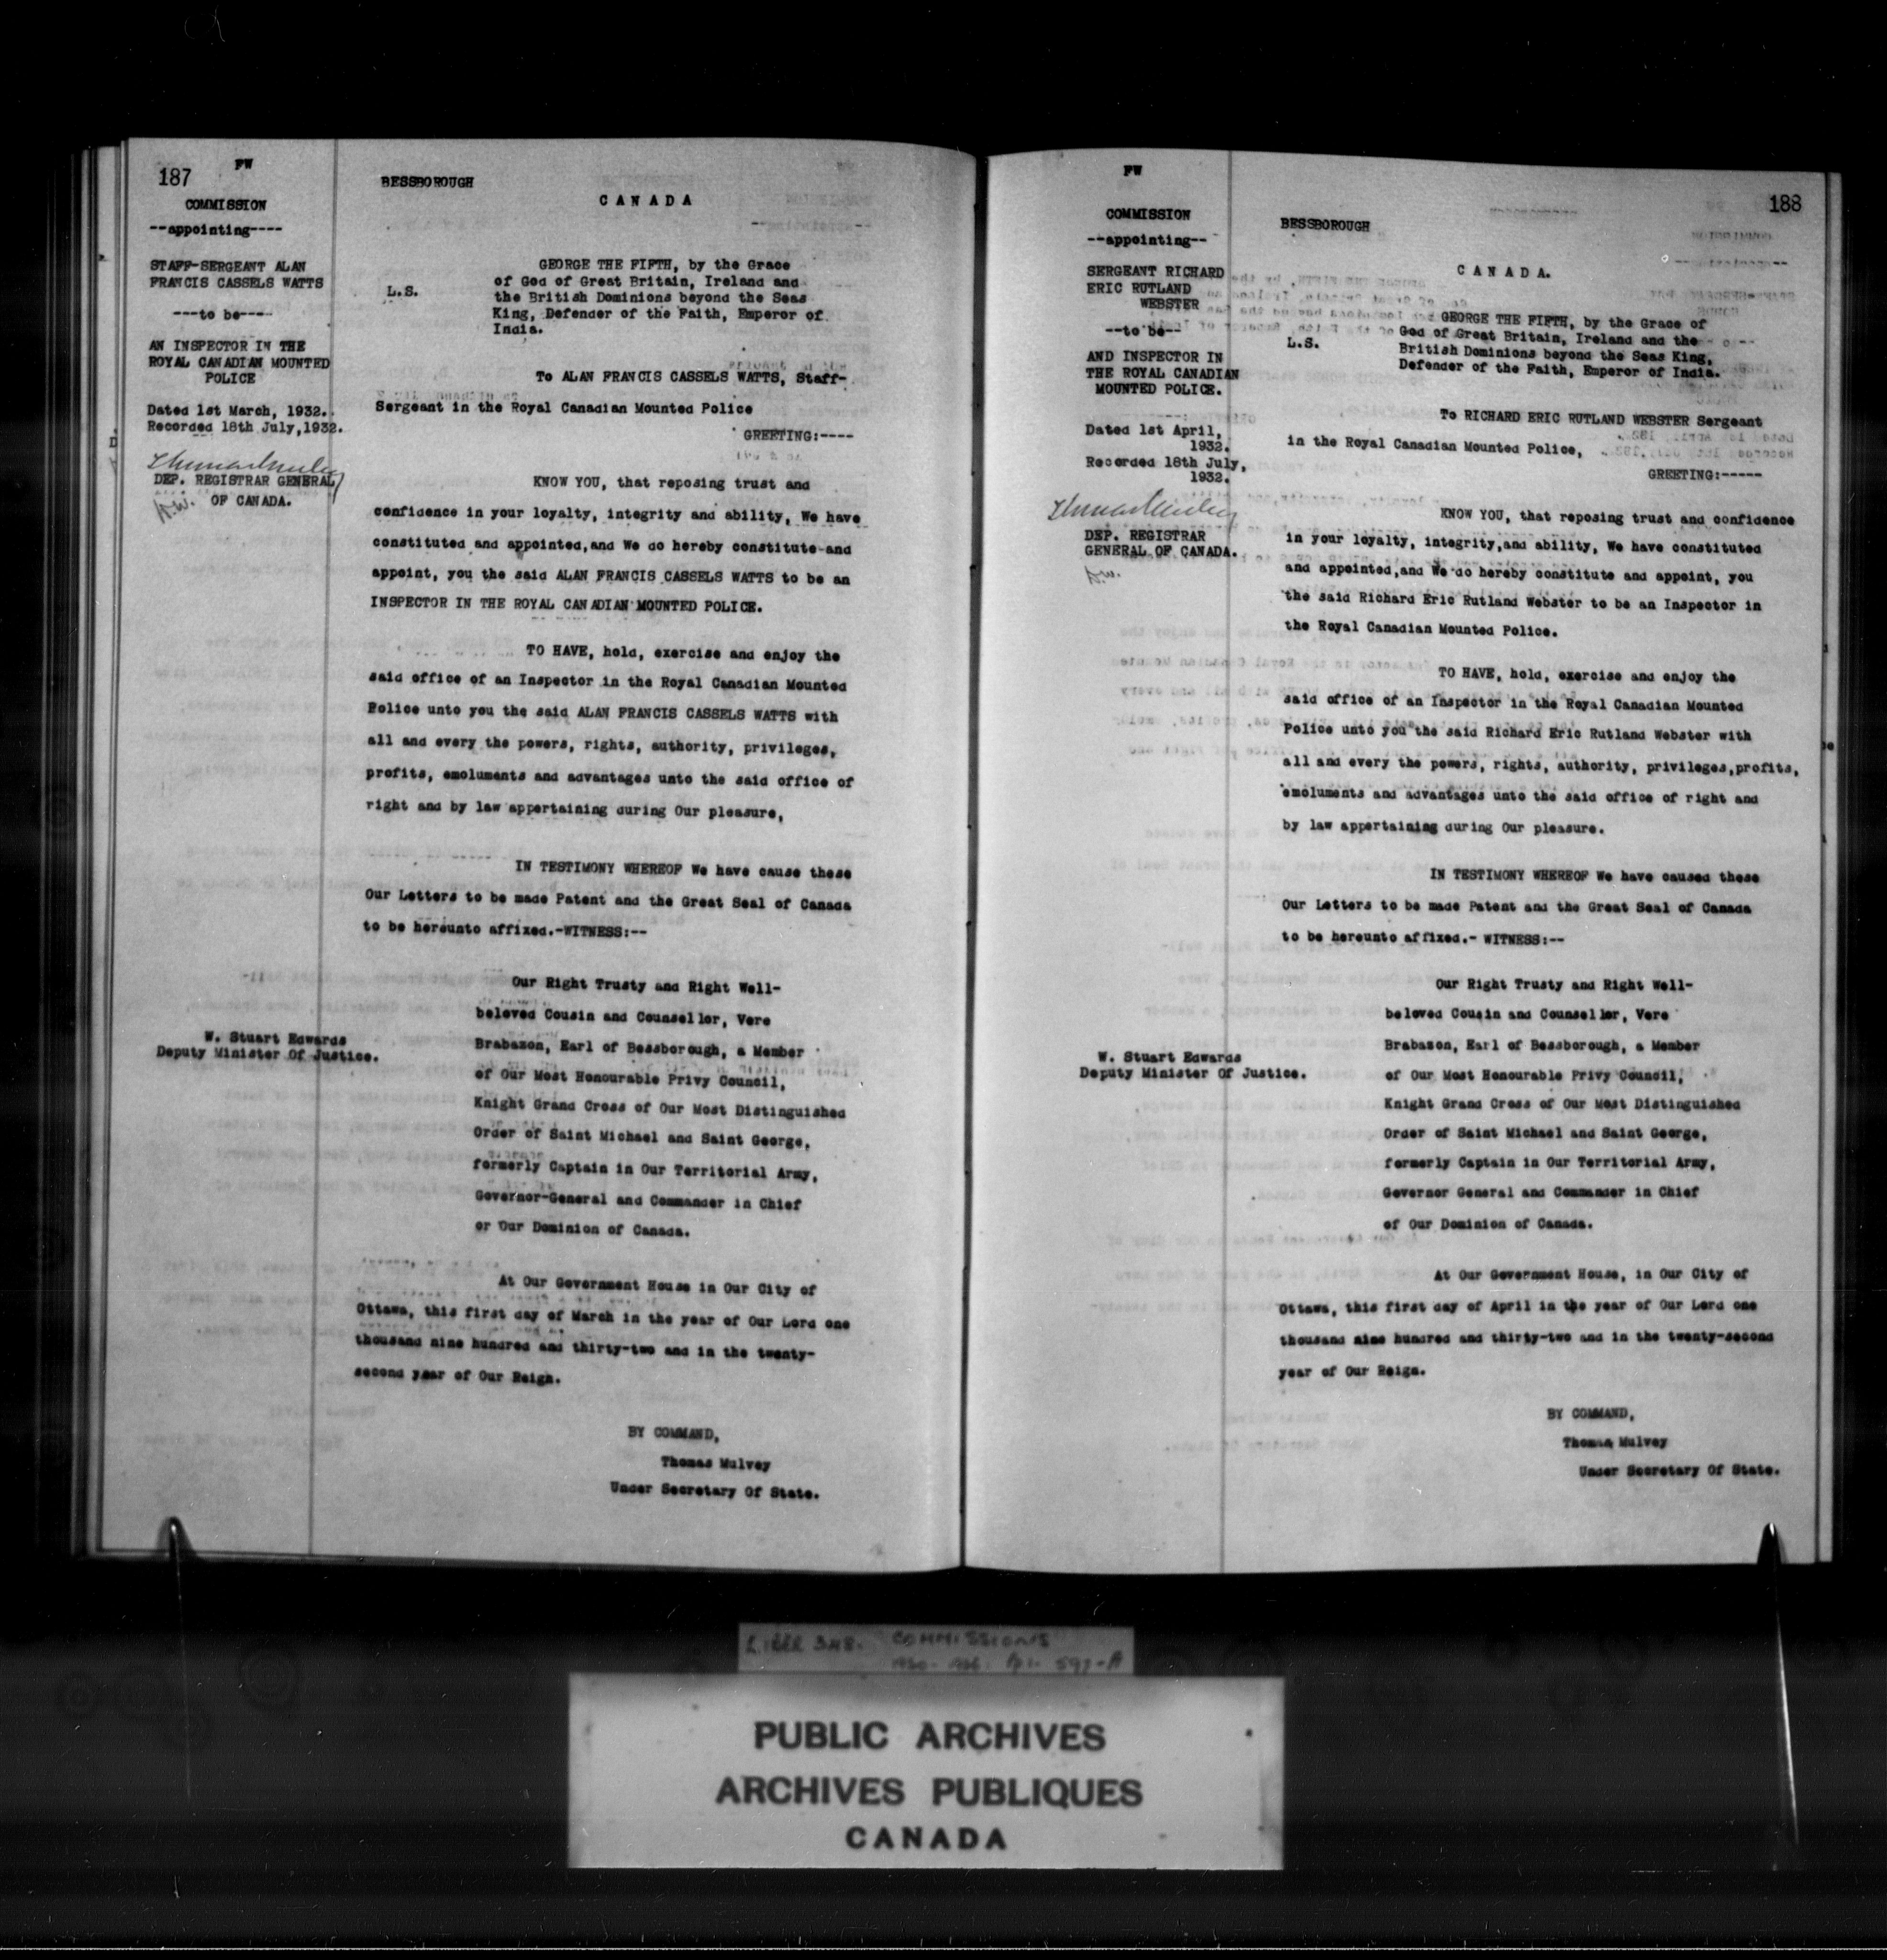 187
FW
COMMISSION
--appointing----
STAFF-SERGEANT ALAN
FRANCIS CASSELS WATTS
---to be----
AN INSPECTOR IN THE
ROYAL CANADIAN MOUNTED
POLICE
Dated 1st March, 1932.
Recorded 18th July,1932.
Thomas Mulvey
DEP. REGISTRAR GENERAL
OF CANADA.
W. Stuart Edwards
Deputy Minister Of Justice.
BESSBOROUGH
CANADA
L.S.
GEORGE THE FIFTH, by the Grace
of God of Great Britain, Ireland and
the British Dominions beyond the Seas
King, Defender of the Faith, Emperor of
India.
To ALAN FRANCIS CASSELS WATTS, Staff-
Sergeant in the Royal Canadian Mounted Police
GREETING:----
KNOW YOU, that reposing trust and
confidence in your loyalty, integrity and ability, We have
constituted and appointed,and We do hereby constitute and
appoint, you the said ALAN FRANCIS CASSELS WATTS to be an
INSPECTOR IN THE ROYAL CANADIAN MOUNTED POLICE.
TO HAVE, hold, exercise and enjoy the
said office of an Inspector in the Royal Canadian Mounted
Police unto you the said ALAN FRANCIS CASSELS WATTS with
all and every the powers, rights, authority, privileges,
profits, emoluments and advantages unto the said office of
right and by law appertaining during Our pleasure,
IN TESTIMONY WHEREOF We have cause these
Our Letters to be made Patent and the Great Seal of Canada
to be hereunto affixed.-WITNESS:--
Our Right Trusty and Right Well-
beloved Cousin and Counsellor, Vere
Brabazon, Earl of Bessborough, a Member
of Our Most Honourable Privy Council,
Knight Grand Cross of Our Most Distinguished
Order of Saint Michael and Saint George,
formerly Captain in Our Territorial Army,
Governor-General and Commander in Chief
or Our Dominion of Canada.
At Our Government House in Our City of
Ottawa, this first day of March in the year of Our Lord one
thousand nine hundred and thirty-two and in the twenty-
second year of Our Reign.
BY COMMAND,
Thomas Mulvey
Under Secretary Of State.
FW
188
COMMISSION
--appointing--
SERGEANT RICHARD
ERIC RUTLAND
WEBSTER
--to be--
AND INSPECTOR IN
THE ROYAL CANADIAN
MOUNTED POLICE.
Dated 1st April,
1932.
Recorded 18th July,
1932.
Thomas Mulvey
DEP. REGISTRAR
GENERAL OF CANADA.
W. Stuart Edwards
Deputy Minister Of Justice.
BESSBOROUGH
CANADA.
L.S.
GEORGE THE FIFTH, by the Grace of
God of Great Britain, Ireland and the
British Dominions beyond the Seas King,
Defender of the Faith, Emperor of India.
To RICHARD ERIC RUTLAND WEBSTER Sergeant
in the Royal Canadian Mounted Police,
GREETING:-----
KNOW YOU, that reposing trust and confidence
in your loyalty, integrity,and ability, We have constituted
and appointed,and We do hereby constitute and appoint, you
the said Richard Eric Rutland Webster to be an Inspector in
the Royal Canadian Mounted Police.
TO HAVE, hold, exercise and enjoy the
said office of an Inspector in the Royal Canadian Mounted
Police unto you the said Richard Eric Rutland Webster with
all and every the powers, rights, authority, privileges,profits,
emoluments and advantages unto the said office of right and
by law appertaining during Our pleasure.
IN TESTIMONY WHEREOF We have caused these
Our Letters to be made Patent and the Great Seal of Canada
to be hereunto affixed.- WITNESS:--
Our Right Trusty and Right Well-
beloved Cousin and Counsellor, Vere
Brabazon, Earl of Bessborough, a Member
of Our Most Honourable Privy Council,
Knight Grand Cross of Our Most Distinguished
Order of Saint Michael and Saint George,
formerly Captain in Our Territorial Army,
Governor General and Commander in Chief
of Our Dominion of Canada.
At Our Government House, in Our City of
Ottawa, this first day of April in the year of Our Lord one
thousand nine hundred and thirty-two and in the twenty-second
year of Our Reign.
BY COMMAND,
Thomas Mulvey
Under Secretary Of State.
LIBER 348. COMMISSIONS
PUBLIC ARCHIVES
ARCHIVES PUBLIQUES
CANADA